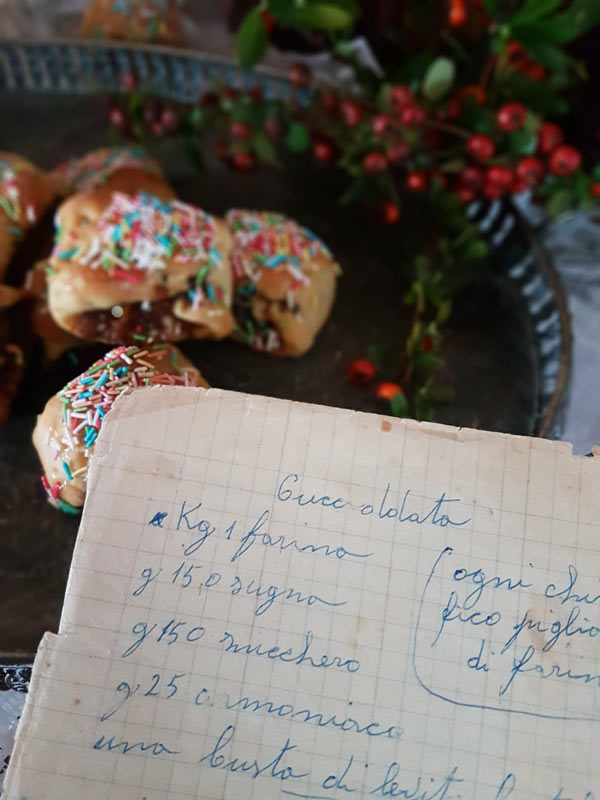 Gucciddata
Kg 1 farina
g 150 sugna
g 150 zucchero
g 25 armoniaca
una busta di levit
ogni chi
fico piglia
di farin